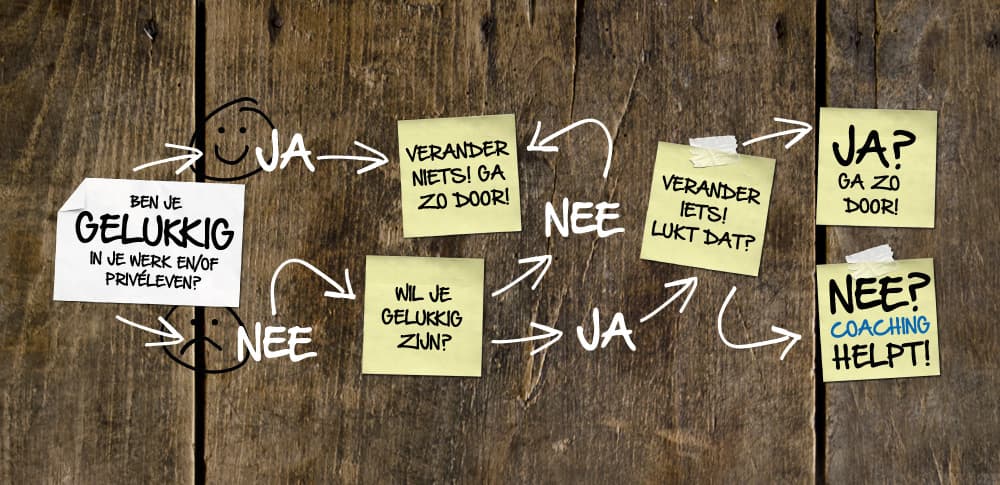 BEN JE
GELUKKIG
IN JE WERK EN/OF
PRIVÉLEVEN?
JA
VERANDER
NIETS! GA
ZO DOOR!
NEE
WIL JE
GELUKKIG
ZIJN?
NEE
JA
VERANDER
IETS!
LUKT DAT?
JA?
GA ZO
DOOR!
NEE?
COACHING
HELPT!